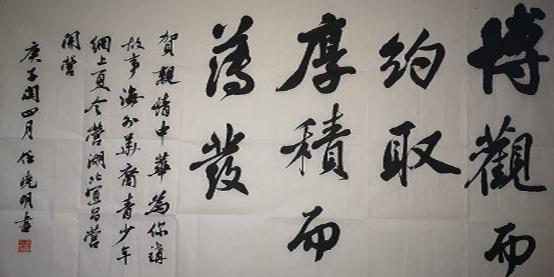 博觀而
約取
厚積而
薄發
賀親情中華為你講
故事海外華裔青少年
網上夏令營湖北宜昌營
開營
庚子閏四月任曉明書